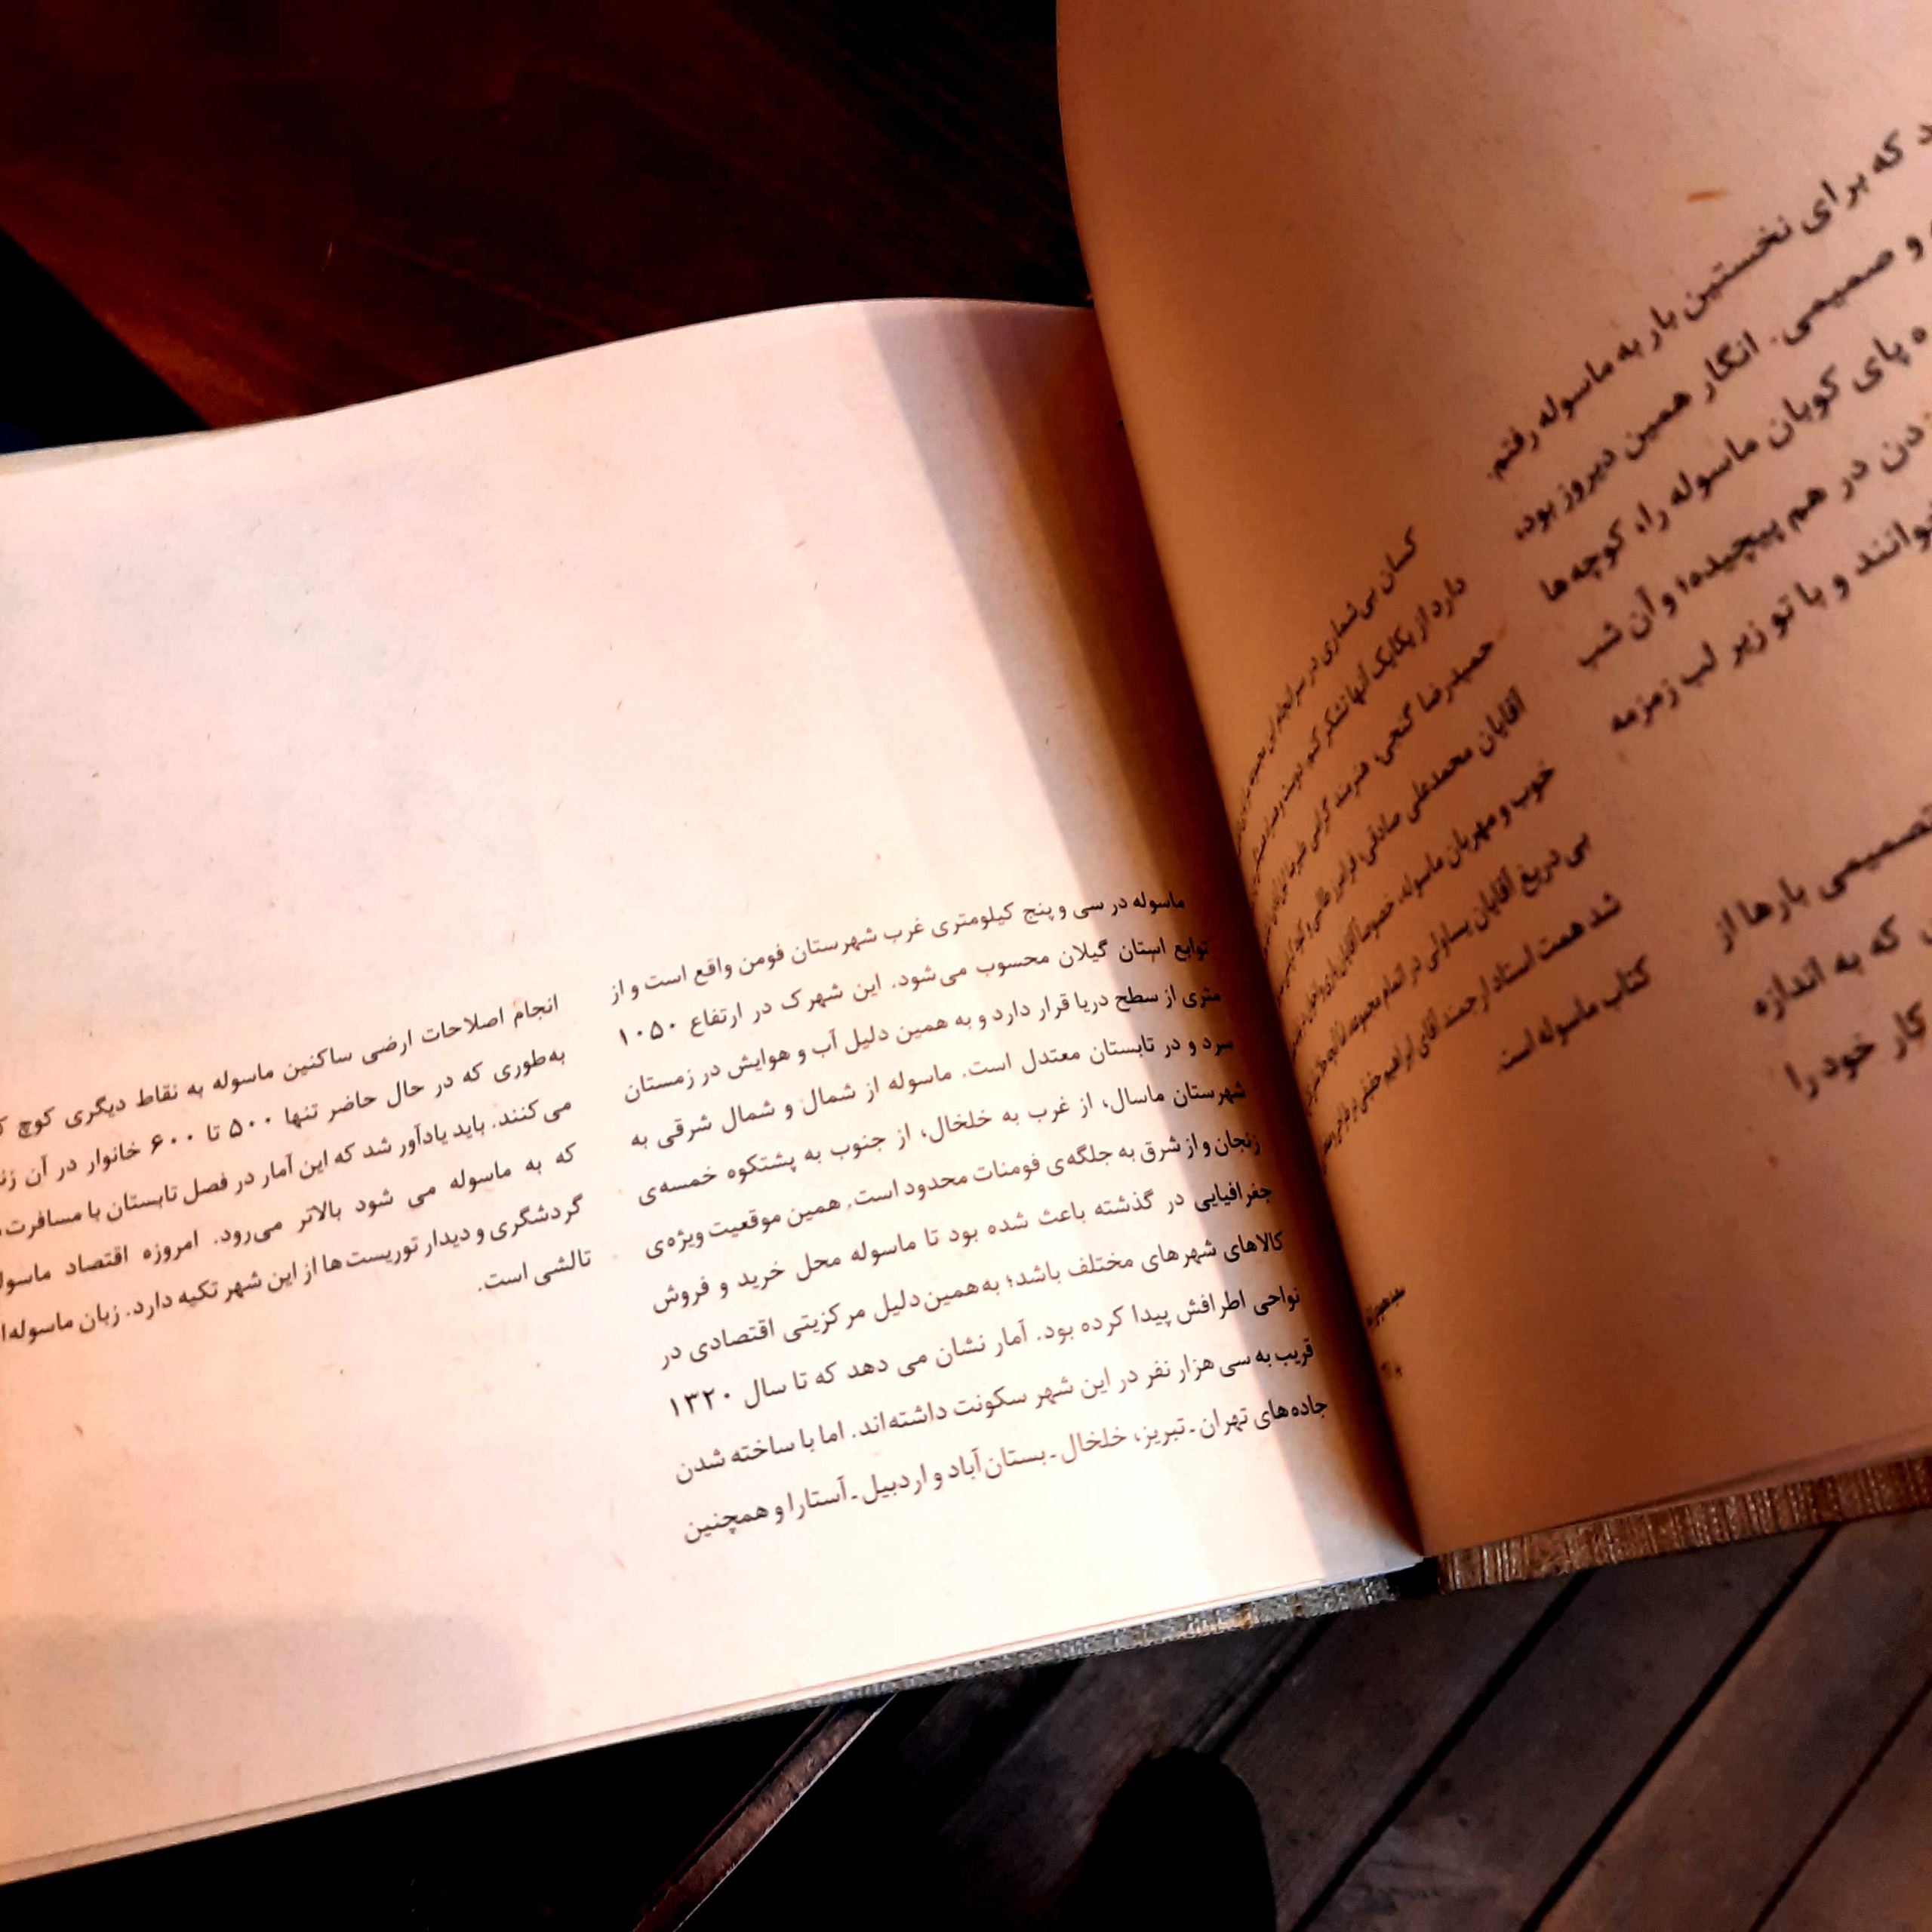 که برای نخستین بار به ماسوله رفتم.
و صمیمی. انگار همین دیروز بود،
پای کوبان ماسوله را، کوچه‌ها
در هم پیچیده؛ و آن شب
و با تو زیر لب زمزمه
تصمیمی بارها از
که به اندازه
کار خود را
کسان بی‌شماری در سرانجام این
دارد از یکایک آنها تشکر کنم.
حمیدرضا گنجی، هنرمند گرامی
آقایان محمدعلی صادقی،
خوب و مهربان ماسوله، خصوصا آقایان
بی دریغ آقایان یساولی در اتمام مجموعه
شد همت استاد ارجمند آقای ابراهیم حقیقی در طراحی
کتاب ماسوله است.
ماسوله در سی و پنج کیلومتری غرب شهرستان فومن واقع است و از
توابع استان گیلان محسوب می‌شود. این شهرک در ارتفاع ۱۰۵۰
متری از سطح دریا قرار دارد و به همین دلیل آب و هوایش در زمستان
سرد و در تابستان معتدل است. ماسوله از شمال و شمال شرقی به
شهرستان ماسال، از غرب به خلخال، از جنوب به پشتکوه خمسه‌ی
زنجان و از شرق به جلگه‌ی فومنات محدود است. همین موقعیت ویژه‌ی
جغرافیایی در گذشته باعث شده بود تا ماسوله محل خرید و فروش
کالاهای شهرهای مختلف باشد؛ به‌همین دلیل مرکزیتی اقتصادی در
نواحی اطرافش پیدا کرده بود. آمار نشان می دهد که تا سال ۱۳۲۰
قریب به سی هزار نفر در این شهر سکونت داشته‌اند. اما با ساخته شدن
جاده‌های تهران-تبریز، خلخال-بستان‌آباد و اردبیل-آستارا و همچنین
انجام اصلاحات ارضی ساکنین ماسوله به نقاط دیگری کوچ
به‌طوری که در حال حاضر تنها ۵۰۰ تا ۶۰۰ خانوار در آن
می‌کنند. باید یادآور شد که این آمار در فصل تابستان با
که به ماسوله می شود بالاتر می‌رود. امروزه اقتصاد
گردشگری و دیدار توریست‌ها از این شهر تکیه دارد. زبان
تالشی است.